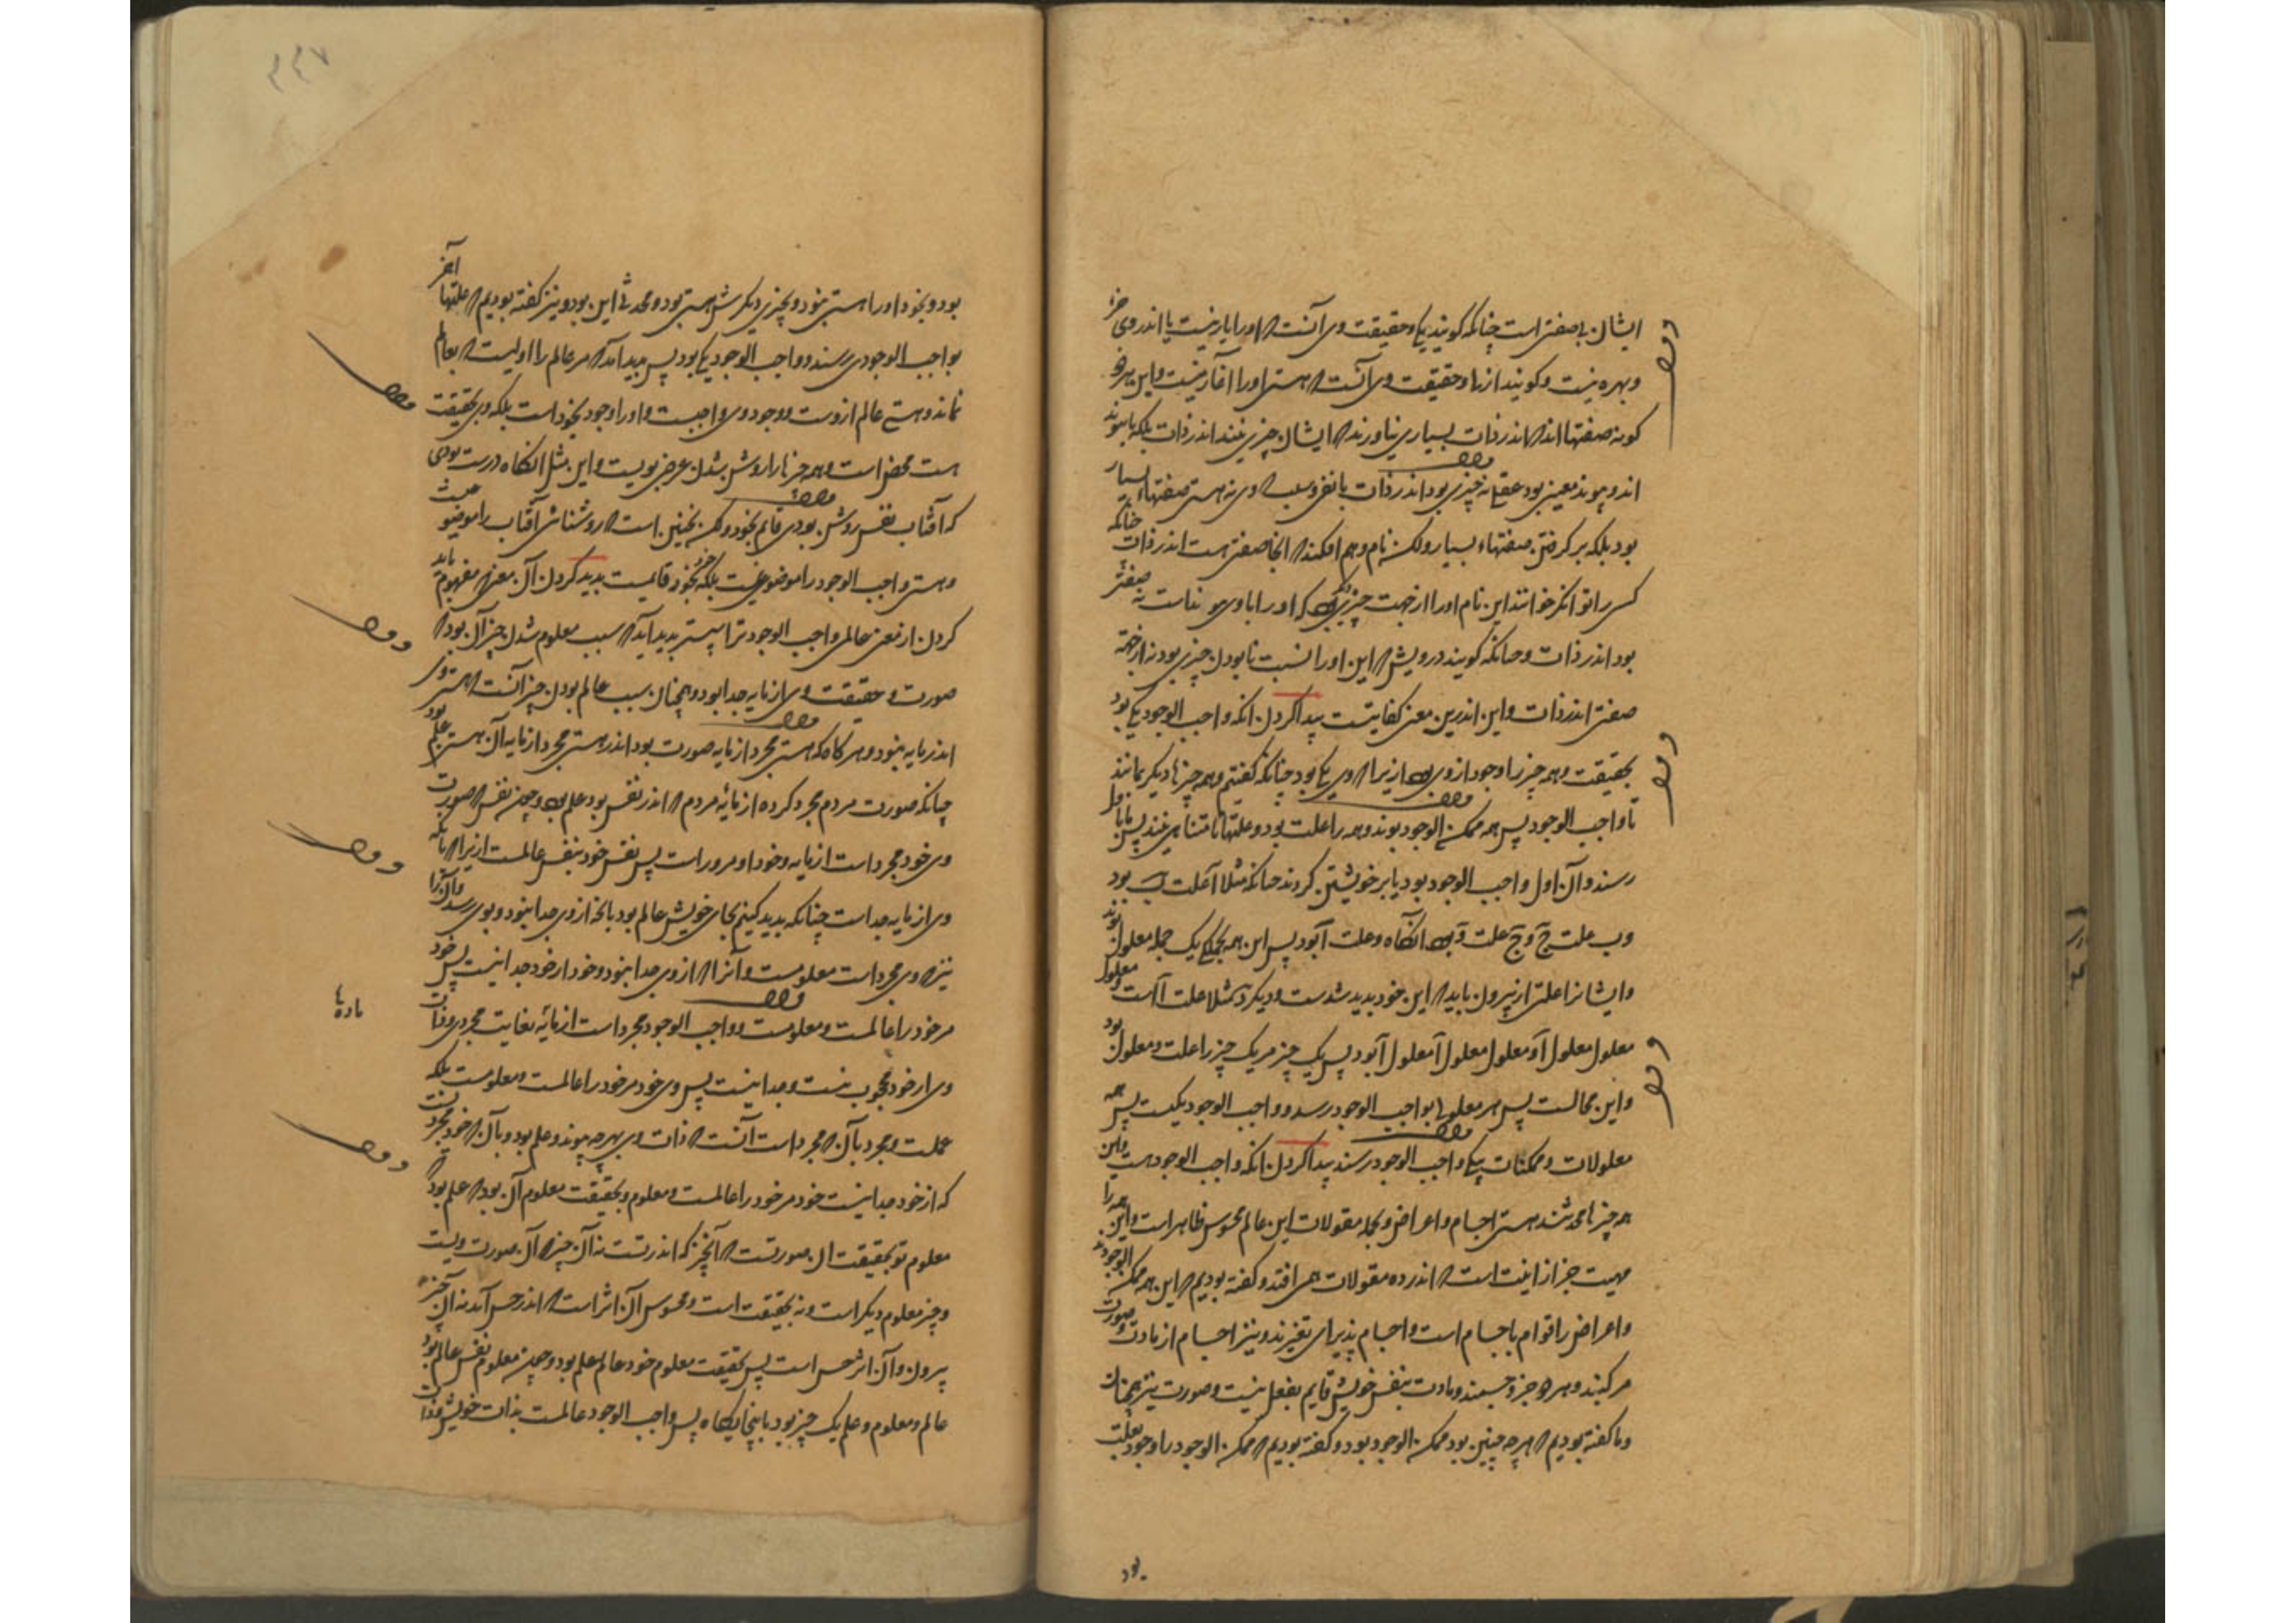 ایشان بی صفتی است چنانکه گویند یکی و حقیقت وی آنست که او را یار نیست یا اندر وی جزء
و بهره نیست و گویند ازلی و حقیقت وی آنست که هستی او را آغاز نیست و این هر دو
گونه صفتها اند که اندر ذات بسیاری نیاورند که ایشان چیزی نیند اندر ذات بلکه یا پیوند
اند و پیوند معنیی بود عقلی نه چیزی بود اندر ذات یا نفی و سلب و وی نه هستی صفتهاء بسیار
بود بلکه بر گرفتن صفتهاء بسیار ولکن نام وهم افکند که آنجا صفتی هست اندر ذات چنانکه
کسی را توانگر خوانند این نام او را از جهت چیزی بود که او را با وی پیوند است نه صفتی
بود اندر ذات و چنانکه گویند درویش که این او را نسبت نابودن چیزی بود نه از جهت
صفتی اندر ذات و این اندرین معنی کفایتست پیدا کردن آنکه واجب الوجود یکی بود
بحقیقت و همه چیز را وجود از وی بود ازیرا که وی یکی بود چنانکه گفتیم و همه چیزها دیگر نمانند
تا واجب الوجود پس همه ممکن الوجود بوند و همه را علت بود و علتها نامتناهی نیند پس یا باول
رسند و آن اول واجب الوجود بود یا بر خویشتن گردند چنانکه مثلا آ علت ب بود
و ب علت ج و ج علت د بود آنگاه د علت آ بود پس این همه بجملگی یک جمله معلول بوند
و ایشانرا علتی از بیرون باید که این خود پدید شدست و دیگر که مثلا علت آ است و معلول
معلول معلول آ و معلول معلول آ معلول آ بود پس یک چیز مر یک چیز را علت و معلول بود
و این محالست پس هر معلولی بواجب الوجود رسد و واجب الوجود یکیست پس همه
معلولات و ممکنات بیکی واجب الوجود رسند پیدا کردن آنکه واجب الوجود هست و این
همه چیزها محدثند هستی اجسام و اعراض و بجمله مقولات این عالم محسوس ظاهر است و این همه را
مهیت جز از انیت است که اندر ده مقولات همی افتد و گفته بودیم که این همه ممکن الوجودند
و اعراض را قوام باجسام است و اجسام پذیرای تغیرند و نیز اجسام از مادت و صورت
مرکبند و هر دو جزو جسمند و مادت بنفس خویش قایم بفعل نیست و صورت نیز همچنان
و ما گفته بودیم که هر چه چنین بود ممکن الوجود بود و گفته بودیم که ممکن الوجود را وجود بعلت
بود
بود و بخود او را هستی نبود و بچیزی دیگرش هستی بود و محدثی این بود و نیز گفته بودیم که علتها آخر
بواجب الوجودی رسند و واجب الوجود یکی بود پس پیدا آمد که مر عالم را اولیست که بعالم
نماند و هستی عالم از وست و وجود وی واجبست و او را وجود بخود است بلکه وی بحقیقت
هست محض است و همه چیزها را روشن شدن عرض بویست و این مثل آنگاه درست بودی
که آفتاب نفس روشنی بودی قایم بخود ولکن نچنین است که روشنائی آفتاب را موضوعست
و هستی واجب الوجود را موضوع نیست بلکه خود بخود قایمست پدید کردن آن معنی که مفهوم باید
کردن از معنی عالمی واجب الوجود ترا پیشتر پدید آید که سبب معلوم شدن چیز آن بود که
صورت و حقیقت وی از مایه جدا بود و همچنان سبب عالم بودن چیز آنست که هستی وی
اندر مایه نبود و هر گاه که هستی مجرد از مایه صورت بود اندر هستی مجرد از مایه آن هستی علم بود
چنانکه صورت مردم مجرد کرده از مایه مردم که اندر نفس بود علم بود و چون نفس که صورت
وی خود مجرد است از مایه و خود او مر وراست پس نفس خود بنفس عالمست ازیرا که تا که
وی از مایه جداست چنانکه پدید کنیم بجای خویش عالم بود بآنچه از وی جدا نبود و بوی رسد و آن را
نیز که وی مجرد است معلومست و آنرا که از وی جدا نبود و خود از خود جدا نیست پس خود
مر خود را عالمست و معلومست و واجب الوجود مجرد است از مایه بغایت مجردی و ذات
وی از خود محجوب نیست و جدا نیست پس وی خود مر خود را عالمست و معلومست بلکه
علمست و مجرد بآن که مجرد است آنست که ذات وی بهر چه پیوندد علم بود و بآن که خود مجردست
که از خود جدا نیست خود مر خود را عالمست و معلوم و بحقیقت معلوم آن بود که علم بود که
معلوم تو بحقیقت آن صورتست از آنچیز که اندر تست نه آن چیز که آن صورت ویست
و چیز معلوم دیگر است و نه بحقیقت است و محسوس آن اثر است که اندر حس آمد نه آن چیز
بیرون و آن اثر حس است پس بحقیقت معلوم خود عالم علم بود و چون معلوم نفس عالم بود
عالم و معلوم و علم یک چیز بود باینجایگاه پس واجب الوجود عالمست بذات خویش و ذات